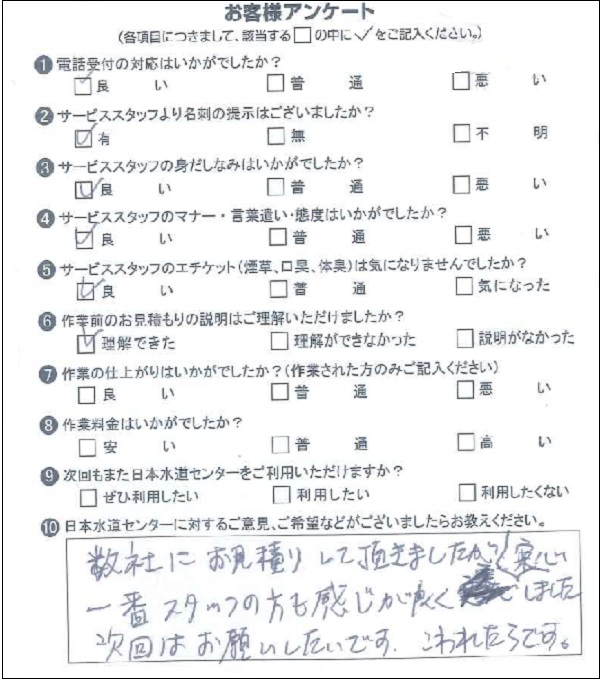 お客様アンケート
(各項目につきまして、該当する□の中に✓をご記入ください。)
❶ 電話受付の対応はいかがでしたか?
☑良 い □普 通 □悪 い
❷ サービススタッフより名刺の提示はございましたか?
☑有 □無 □不 明
❸ サービススタッフの身だしなみはいかがでしたか?
☑良 い □普 通 □悪 い
❹ サービススタッフのマナー・言葉遣い・態度はいかがでしたか?
☑良 い □普 通 □悪 い
❺ サービススタッフのエチケット(煙草、口臭、体臭)は気になりませんでしたか?
☑良 い □普 通 □気になった
❻ 作業前のお見積もりの説明はご理解いただけましたか?
☑理解できた □理解ができなかった □説明がなかった
❼ 作業の仕上がりはいかがでしたか?(作業された方のみご記入ください)
□良 い □普 通 □悪 い
❽ 作業料金はいかがでしたか?
□安 い □普 通 □高 い
❾ 次回もまた日本水道センターをご利用いただけますか?
□ぜひ利用したい □利用したい □利用したくない
❿ 日本水道センターに対するご意見、ご希望などがございましたらお教えください。
数社にお見積りして頂きましたが
一番スタッフの方も感じが良く でしました
次回はお願いしたいです. こわれたらです。